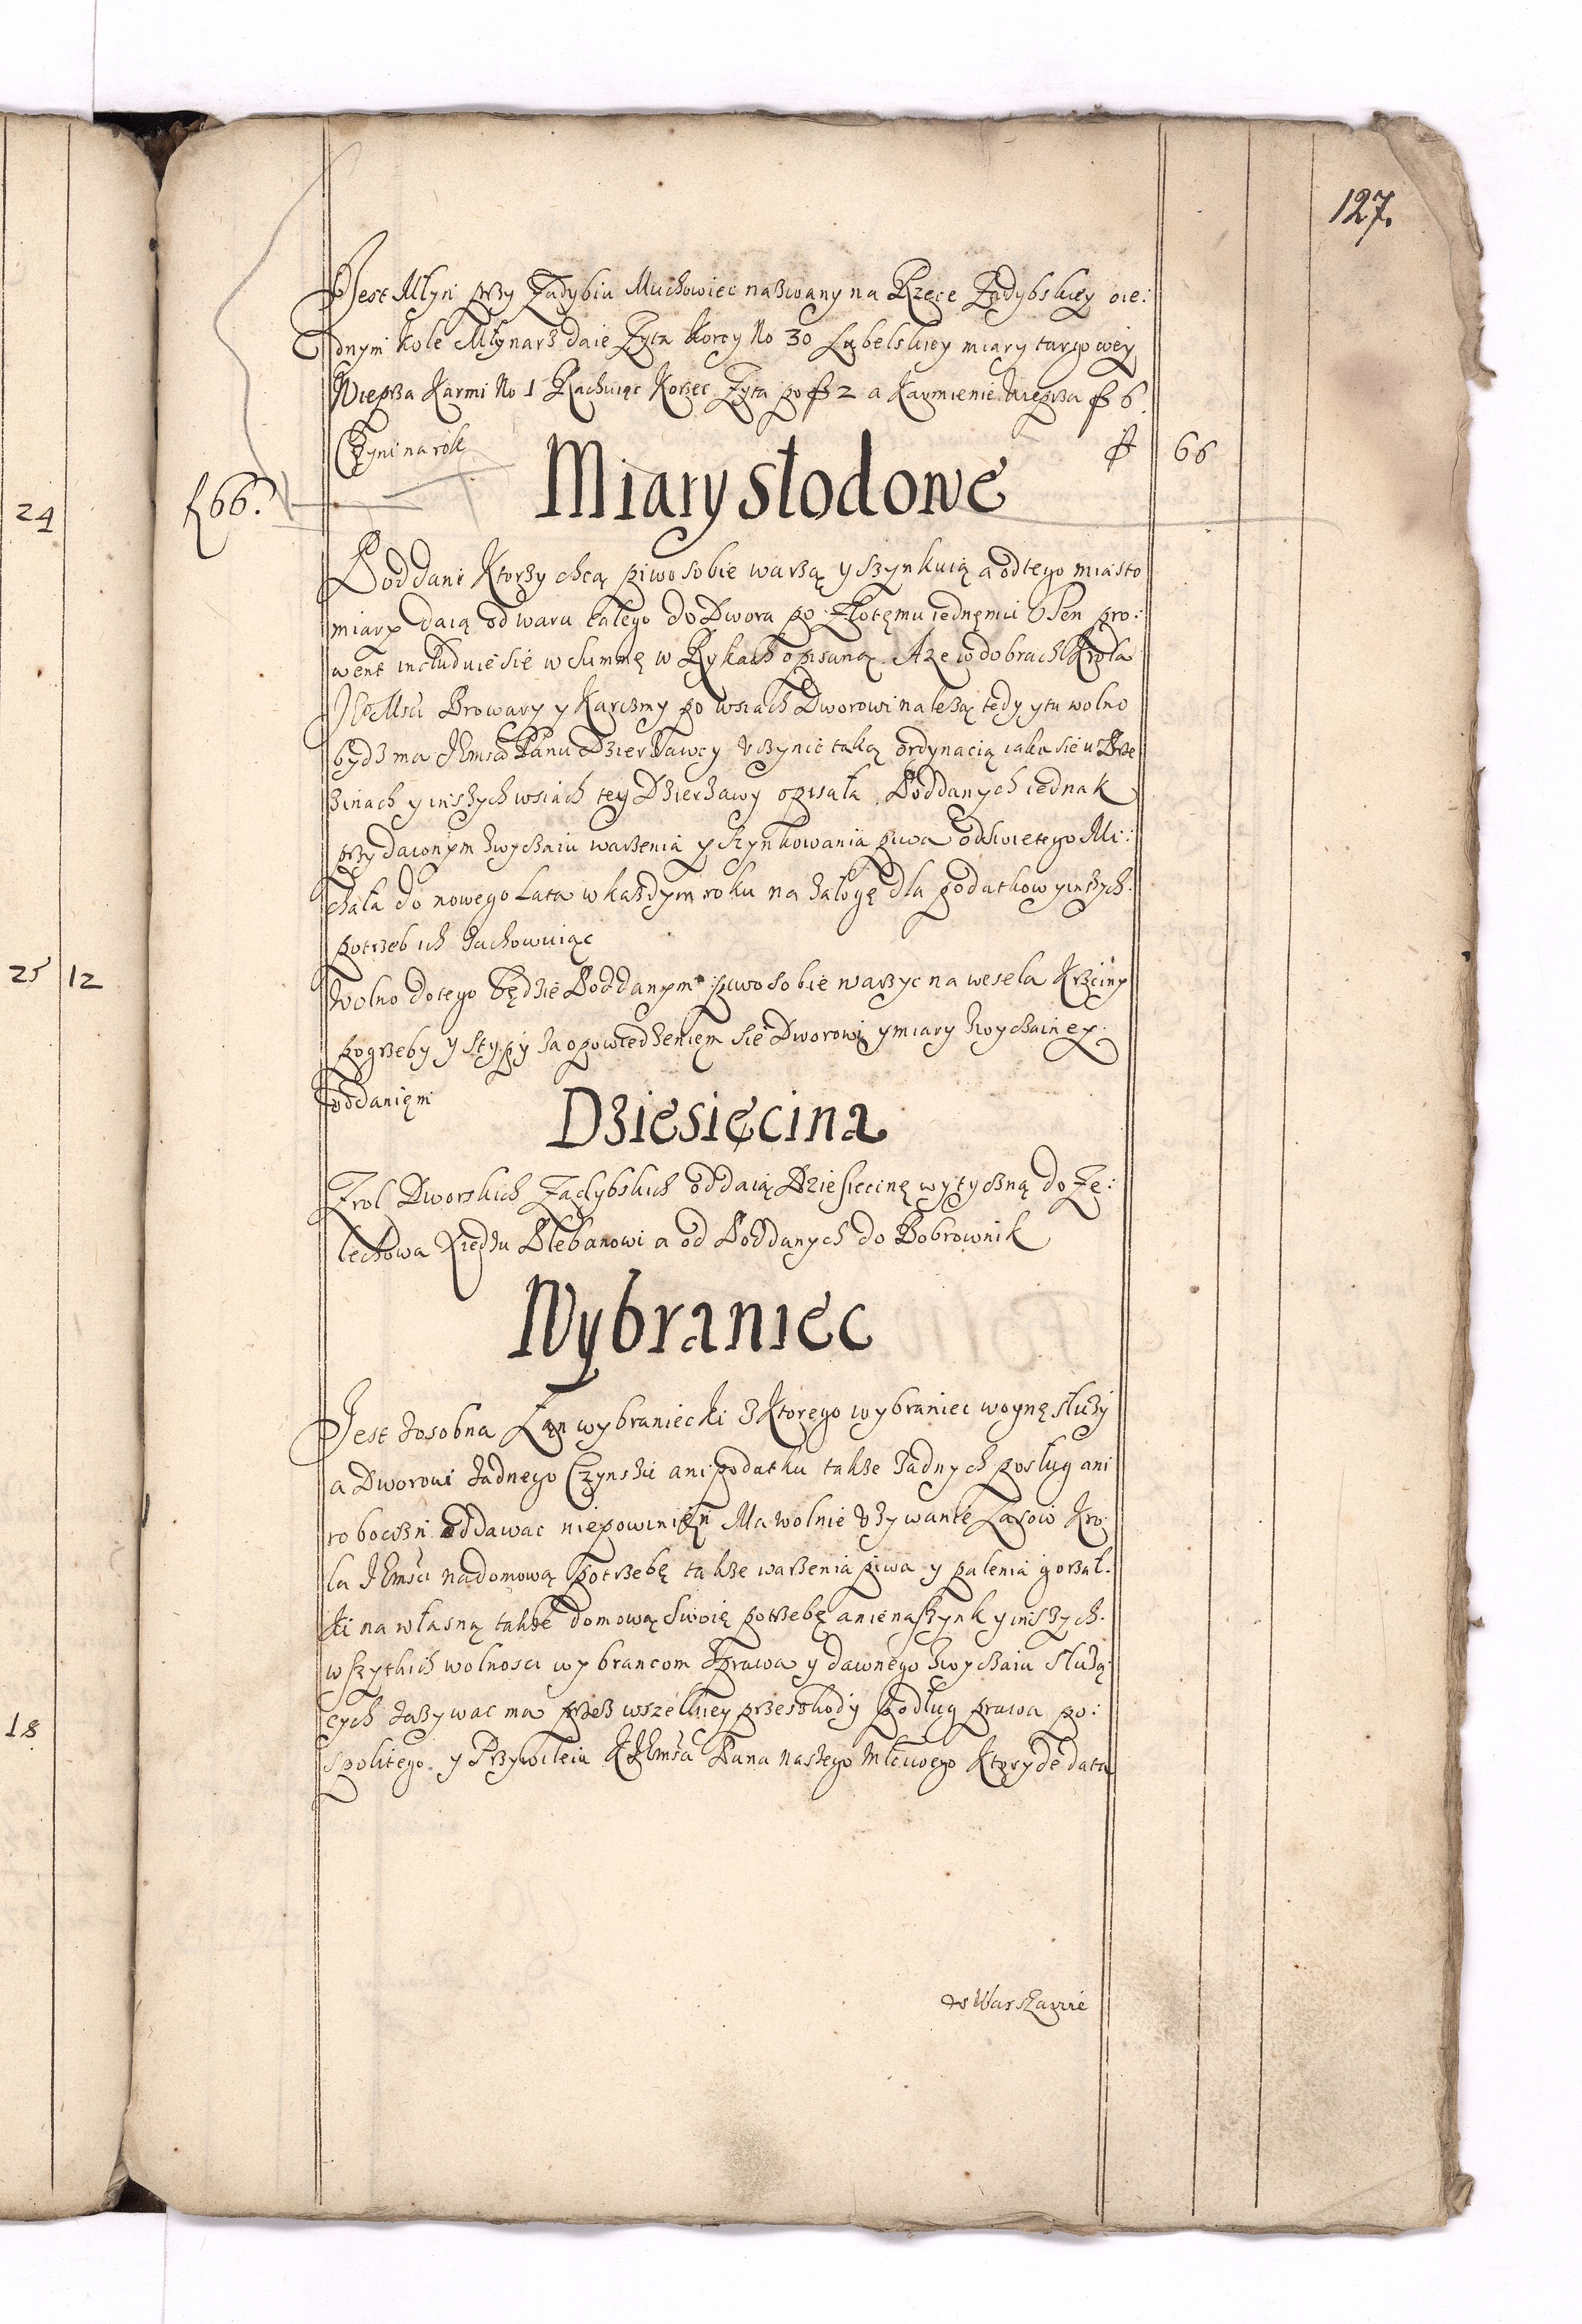 127.
Jest Młyn przy Zadybiu Muchowiec nazwany na Rzece Zadybskiey oie:
dnym kole Młynarz daie Zyta Korcy No 30 Lubelskiey miary targowey
Wieprza Karmi No 1 Rachuiąc Korzec Zyta po fl 2 a Karmienie Wieprza fl 6.
Czyni na rok fl 66
f 66.
Miary Słodowe
Poddani Ktorzy chcą piwo sobie warzą y szynkuią a od tego miasto
miary daią od waru całego do Dwora po Złotęmu iednęmu Ten pro:
went includuie się w Summę w Rykach opisaną. A ze w dobrach Krola
JeoMsci Browary y Karczmy po wsiach Dworowi nalezą tedy y tu wolno
bydz ma JEmsci Panu Dzierzawcy uczynic taką ordynacią iaka sie w Brze
zinach y inszych wsiach tey Dzierzawy opisała. Poddanych iednak
przy dawnym zwyczaiu warzenia y szynkowania piwa od Swietego Mi:
chała do nowego Lata w kazdym roku na załogę dla podatkow y inszych
potrzeb ich zachowuiąc
Wolno do tego będzie Poddanym piwo sobie warzyc na wesela Krzciny
pogrzeby y stypy za opowiedzeniem sie Dworowi y miary zwyczainey
oddanięm
Dziesięcina
Z rol Dworskich Zadybskich oddaią Dziesiecinę wytyczną do Zę:
lechowa Xiedzu Plebanowi a od Poddanych do Bobrownik
Wybraniec
Jest zosobna Łan wybraniecki z Ktorego wybraniec woynę słuzy
a Dworowi zadnego Czynszu ani podatku takze zadnych posług ani
roboczn oddawac niepowinięn Ma wolnie uzywanie Lasow Kro
la JEmsci na domową potrzebę takze warzenia piwa y palenia gorzał.
ki na własną takze domową swoię potrzebę a nie na szynk y inszych
wszytkich wolnosci wybrancom z prawa y dawnego zwyczaiu słuzą
cych zazywac ma przez wszelkiey przeszkody podług prawa po:
spolitego y Przywileiu KJEmsci Pana naszego Młciwego Ktory de data
w Warszawie
24
25 12
18